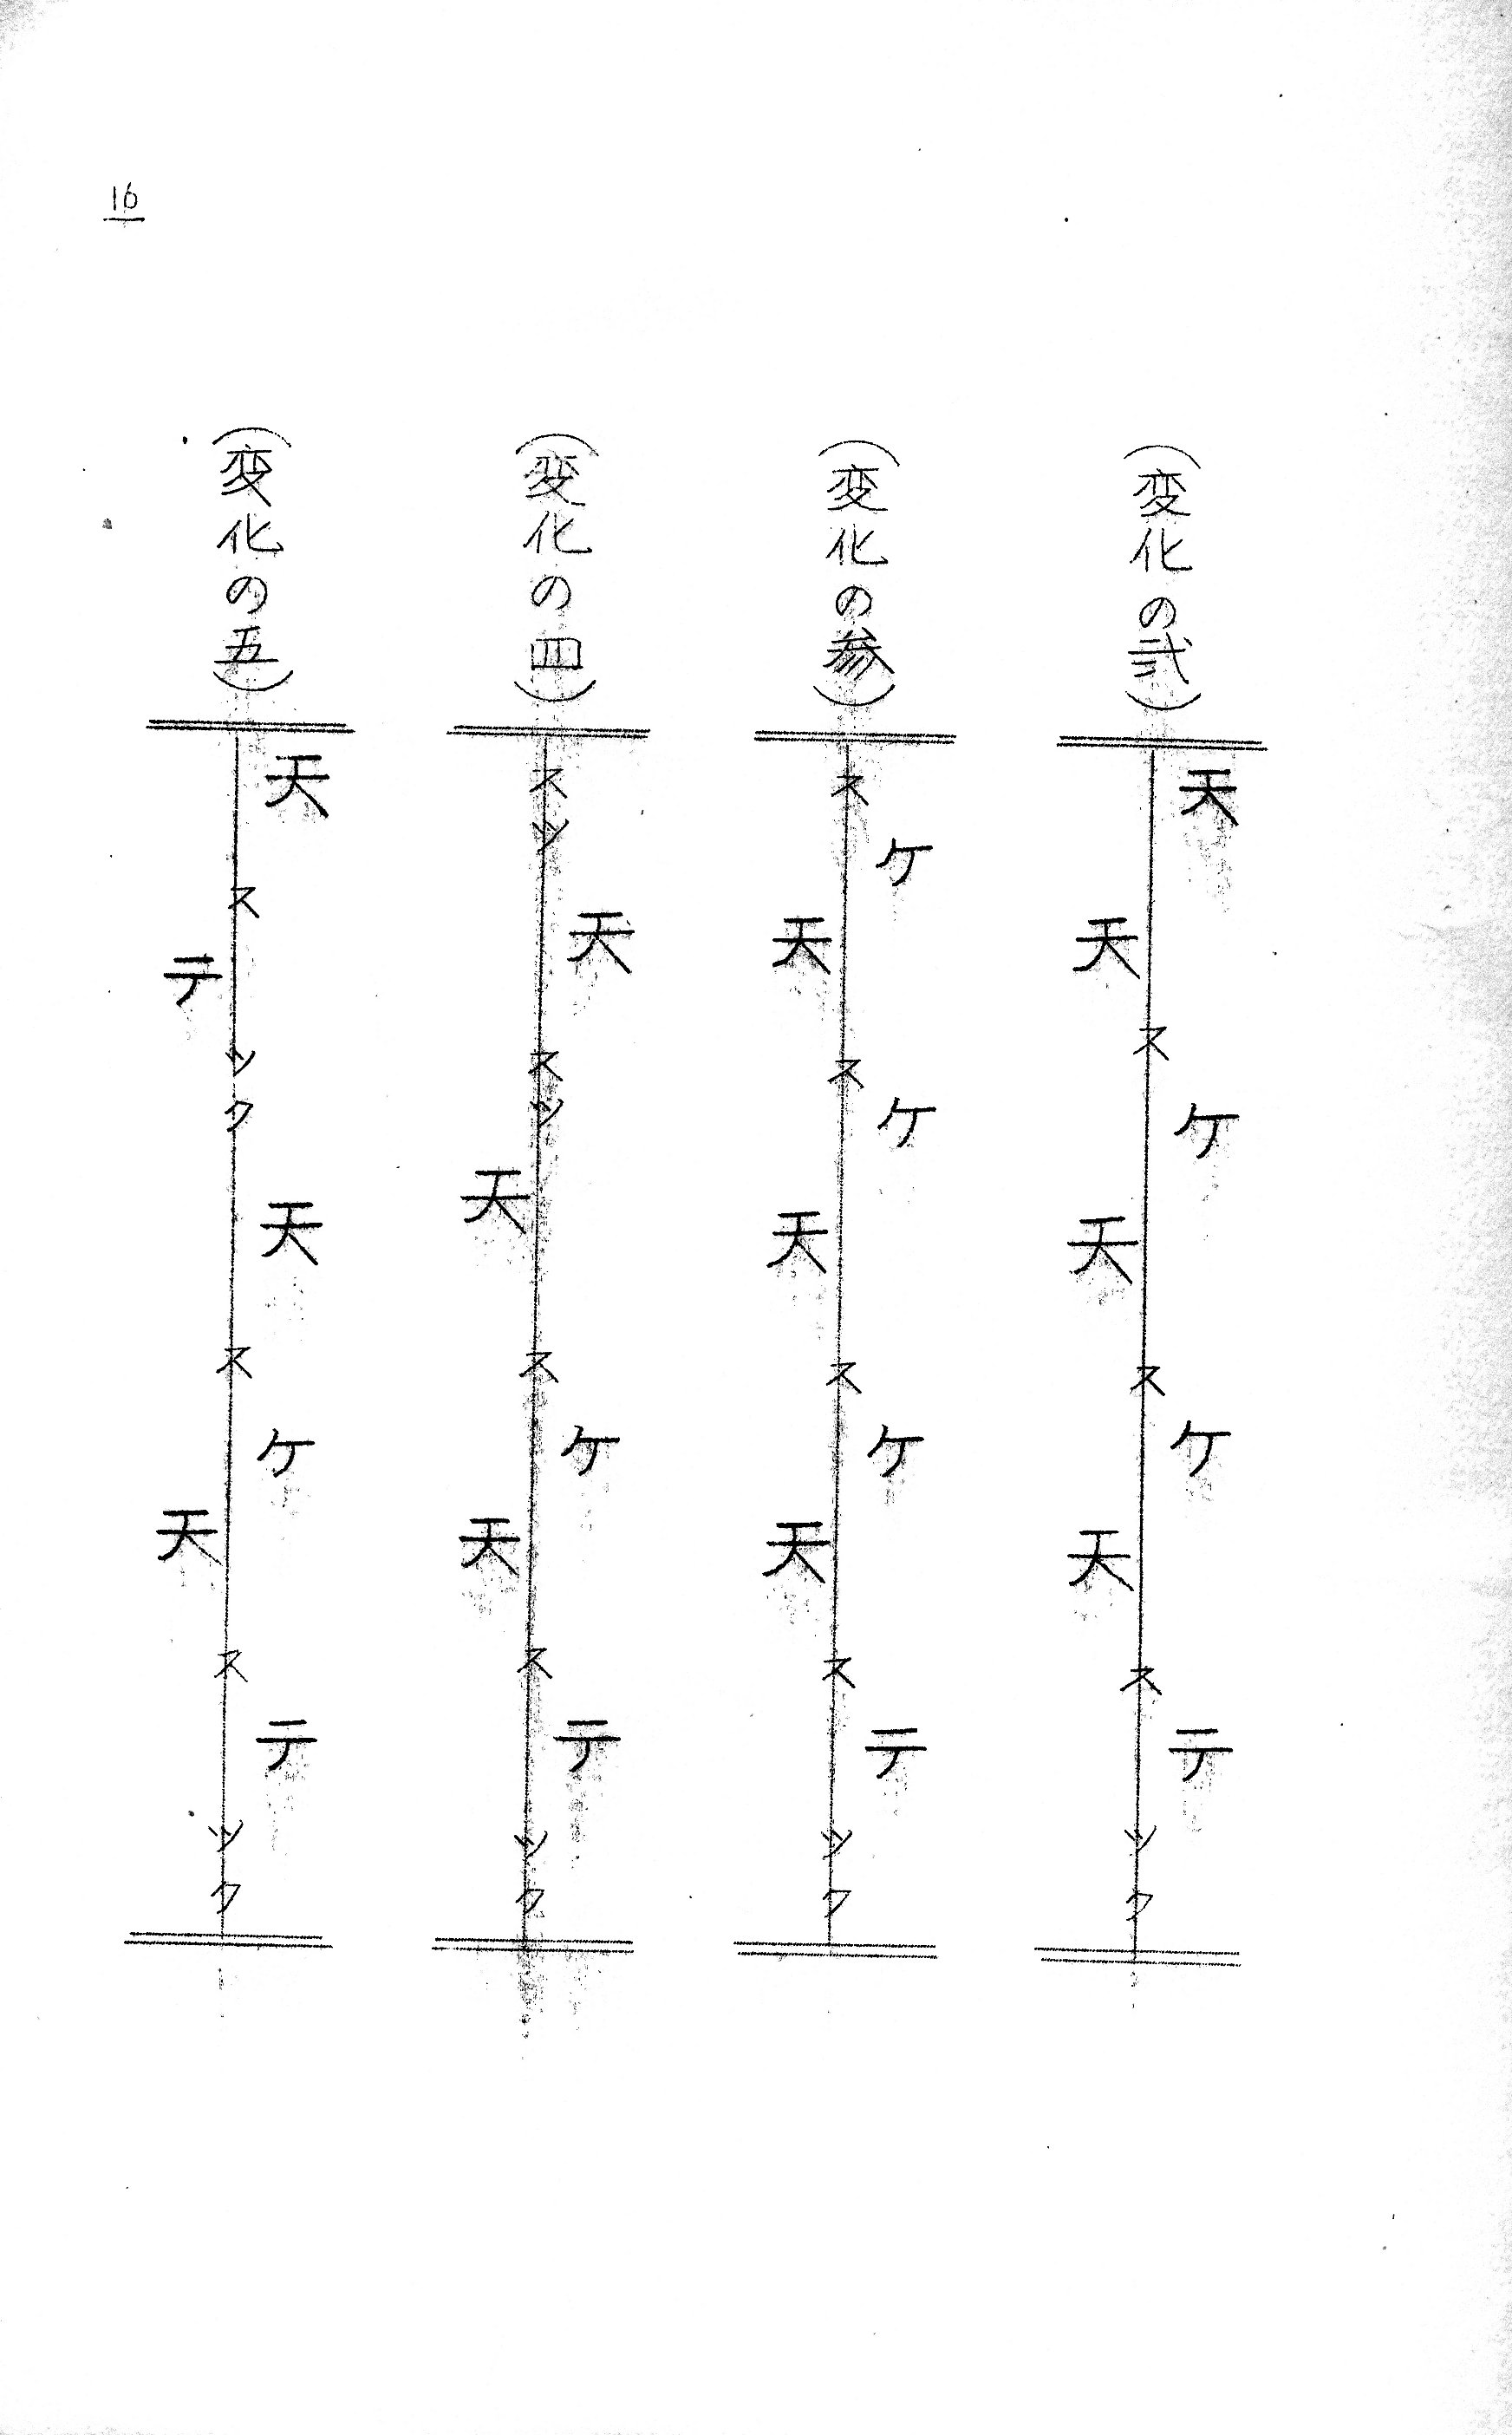 (変化の弐)
天天スケ天スケ天ステツク
(変化の参)
スケ天スケ天スケ天ステツク
(変化の四)
スツ天スツ天スケ天ステツク
(変化の五)
天ステツク天スケ天ステツク
16